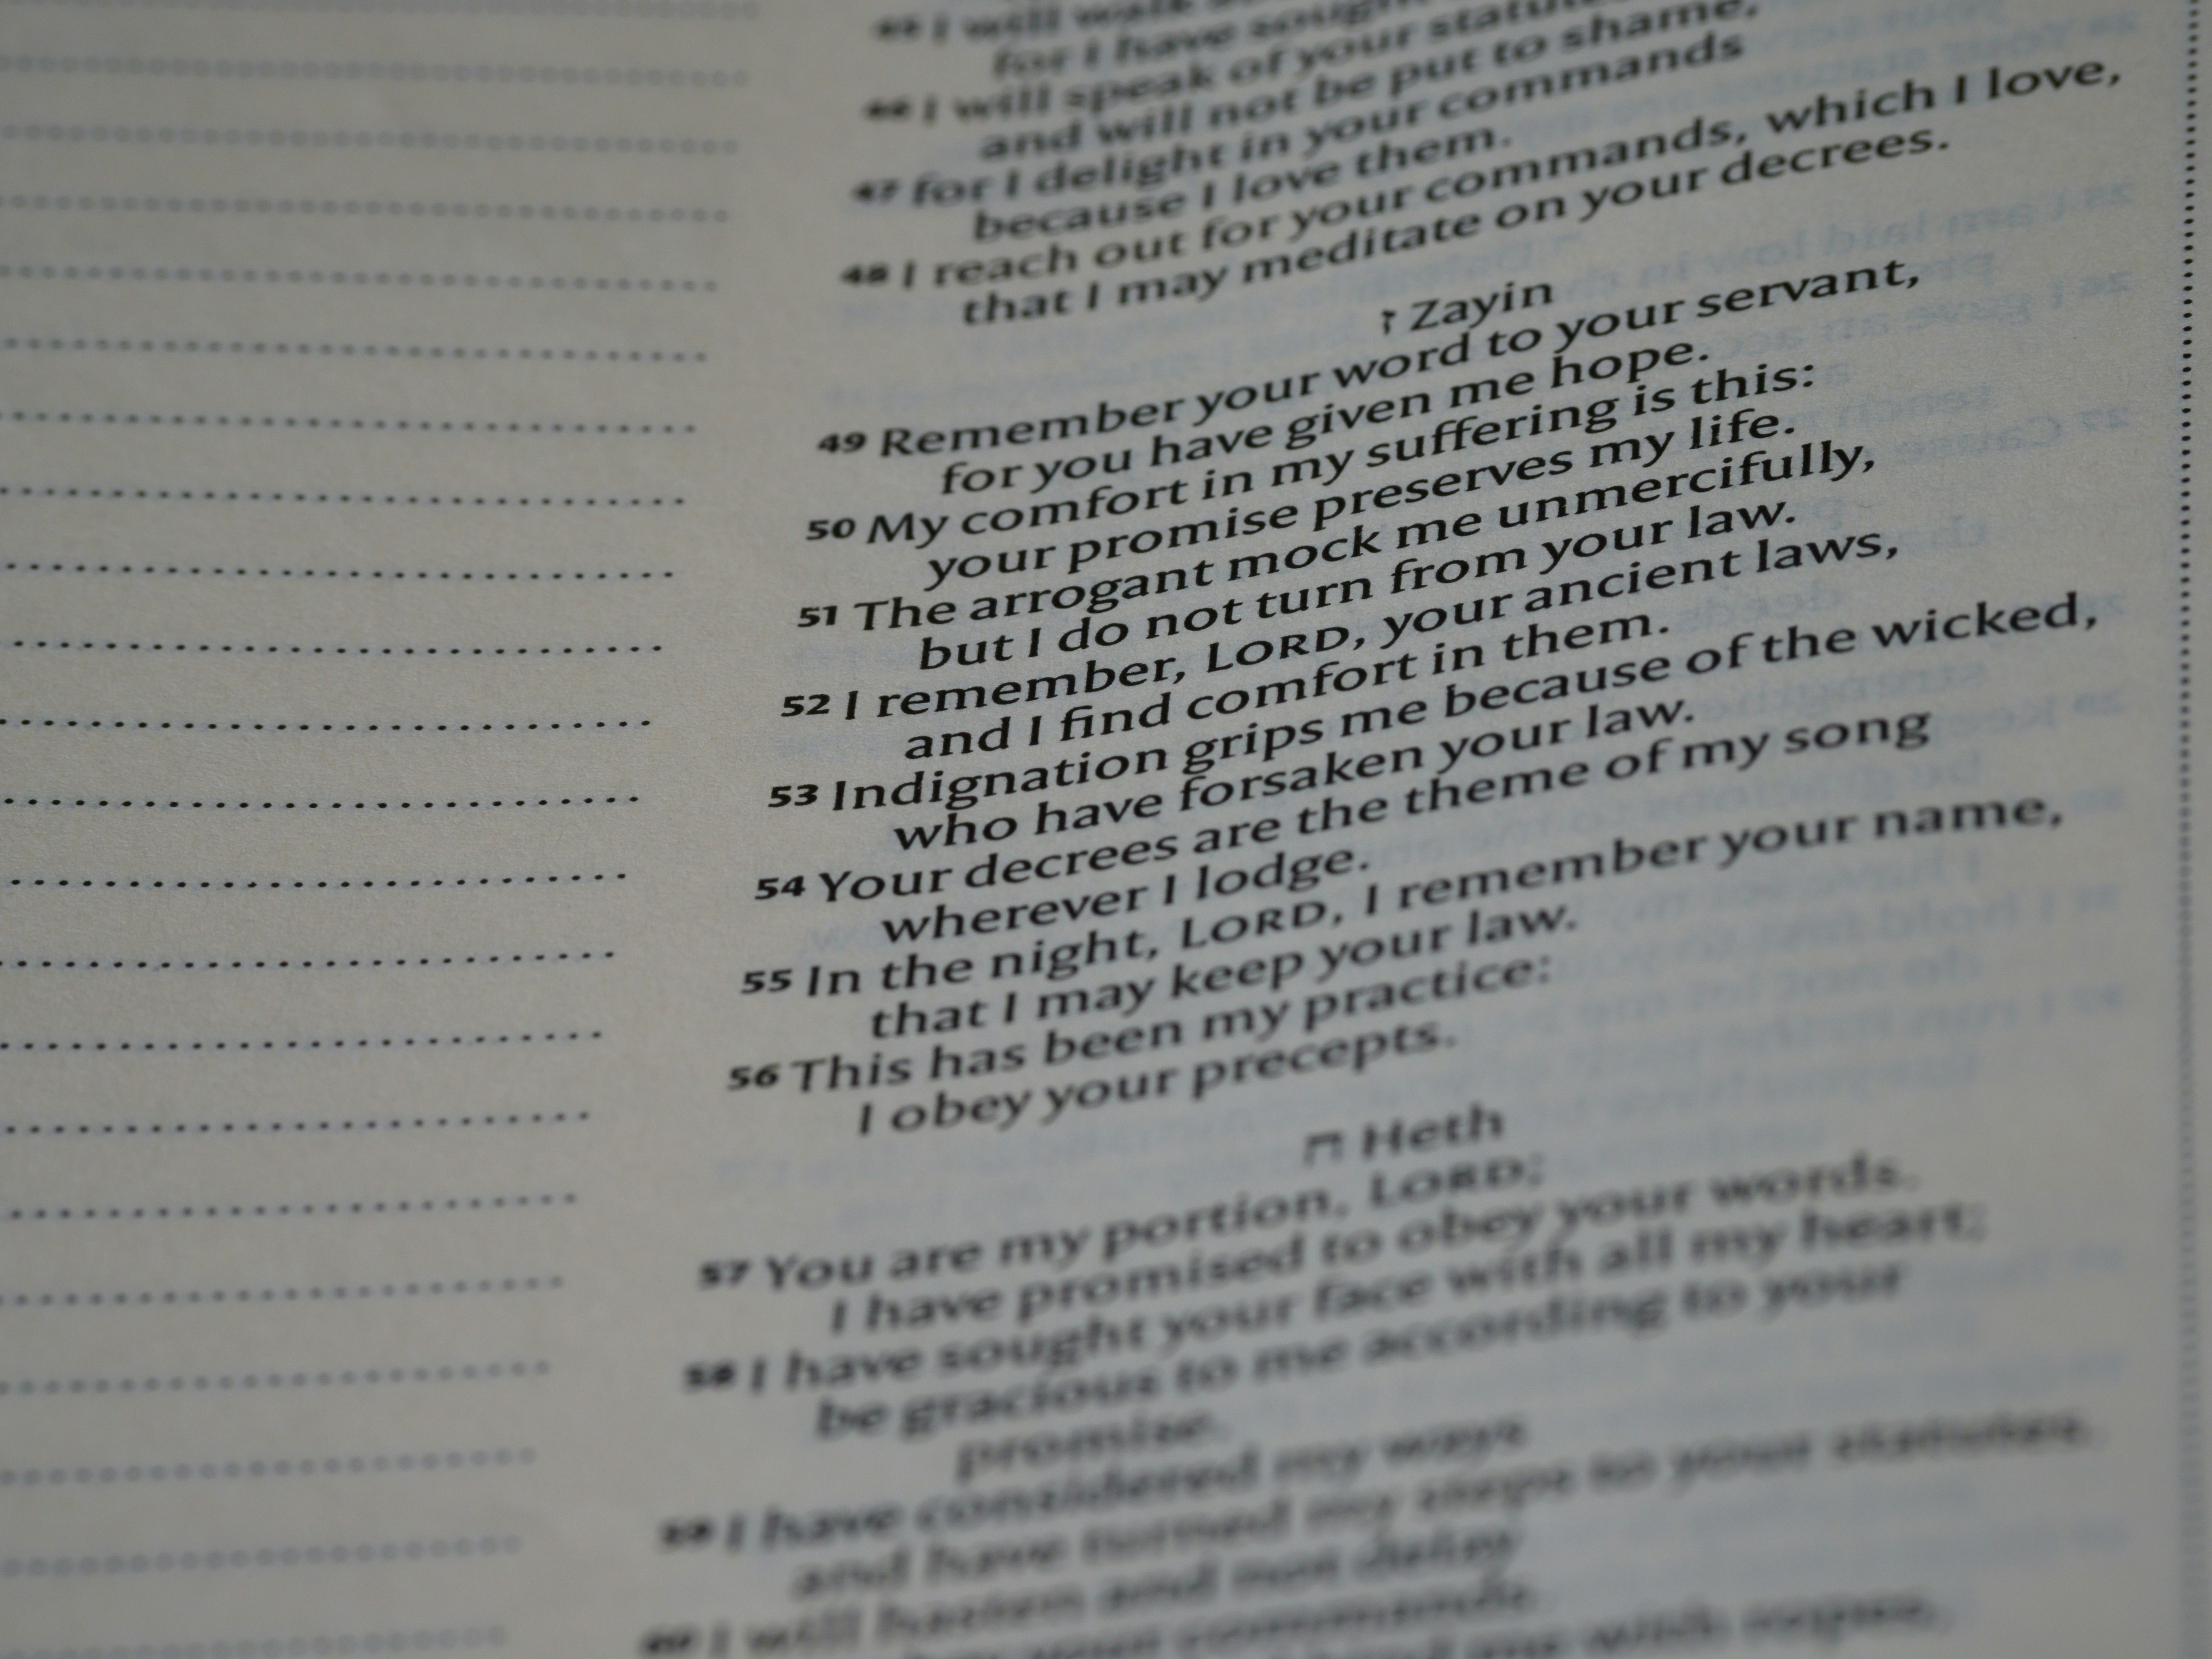 45 I will walk
for I have sought
46 I will speak of your statutes
and will not be put to shame,
47 for I delight in your commands
because I love them.
48 I reach out for your commands, which I love,
that I may meditate on your decrees.
ז Zayin
49 Remember your word to your servant,
for you have given me hope.
50 My comfort in my suffering is this:
your promise preserves my life.
51 The arrogant mock me unmercifully,
but I do not turn from your law.
52 I remember, LORD, your ancient laws,
and I find comfort in them.
53 Indignation grips me because of the wicked,
who have forsaken your law.
54 Your decrees are the theme of my song
wherever I lodge.
55 In the night, LORD, I remember your name,
that I may keep your law.
56 This has been my practice:
I obey your precepts.
ח Heth
57 You are my portion, LORD;
I have promised to obey your words.
58 I have sought your face with all my heart;
be gracious to me according to your
promise.
59 I have considered my ways
and have turned my steps to your statutes.
60 I will hasten and not delay
your commands.
with ropes,